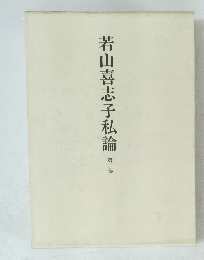 若山喜志子私論